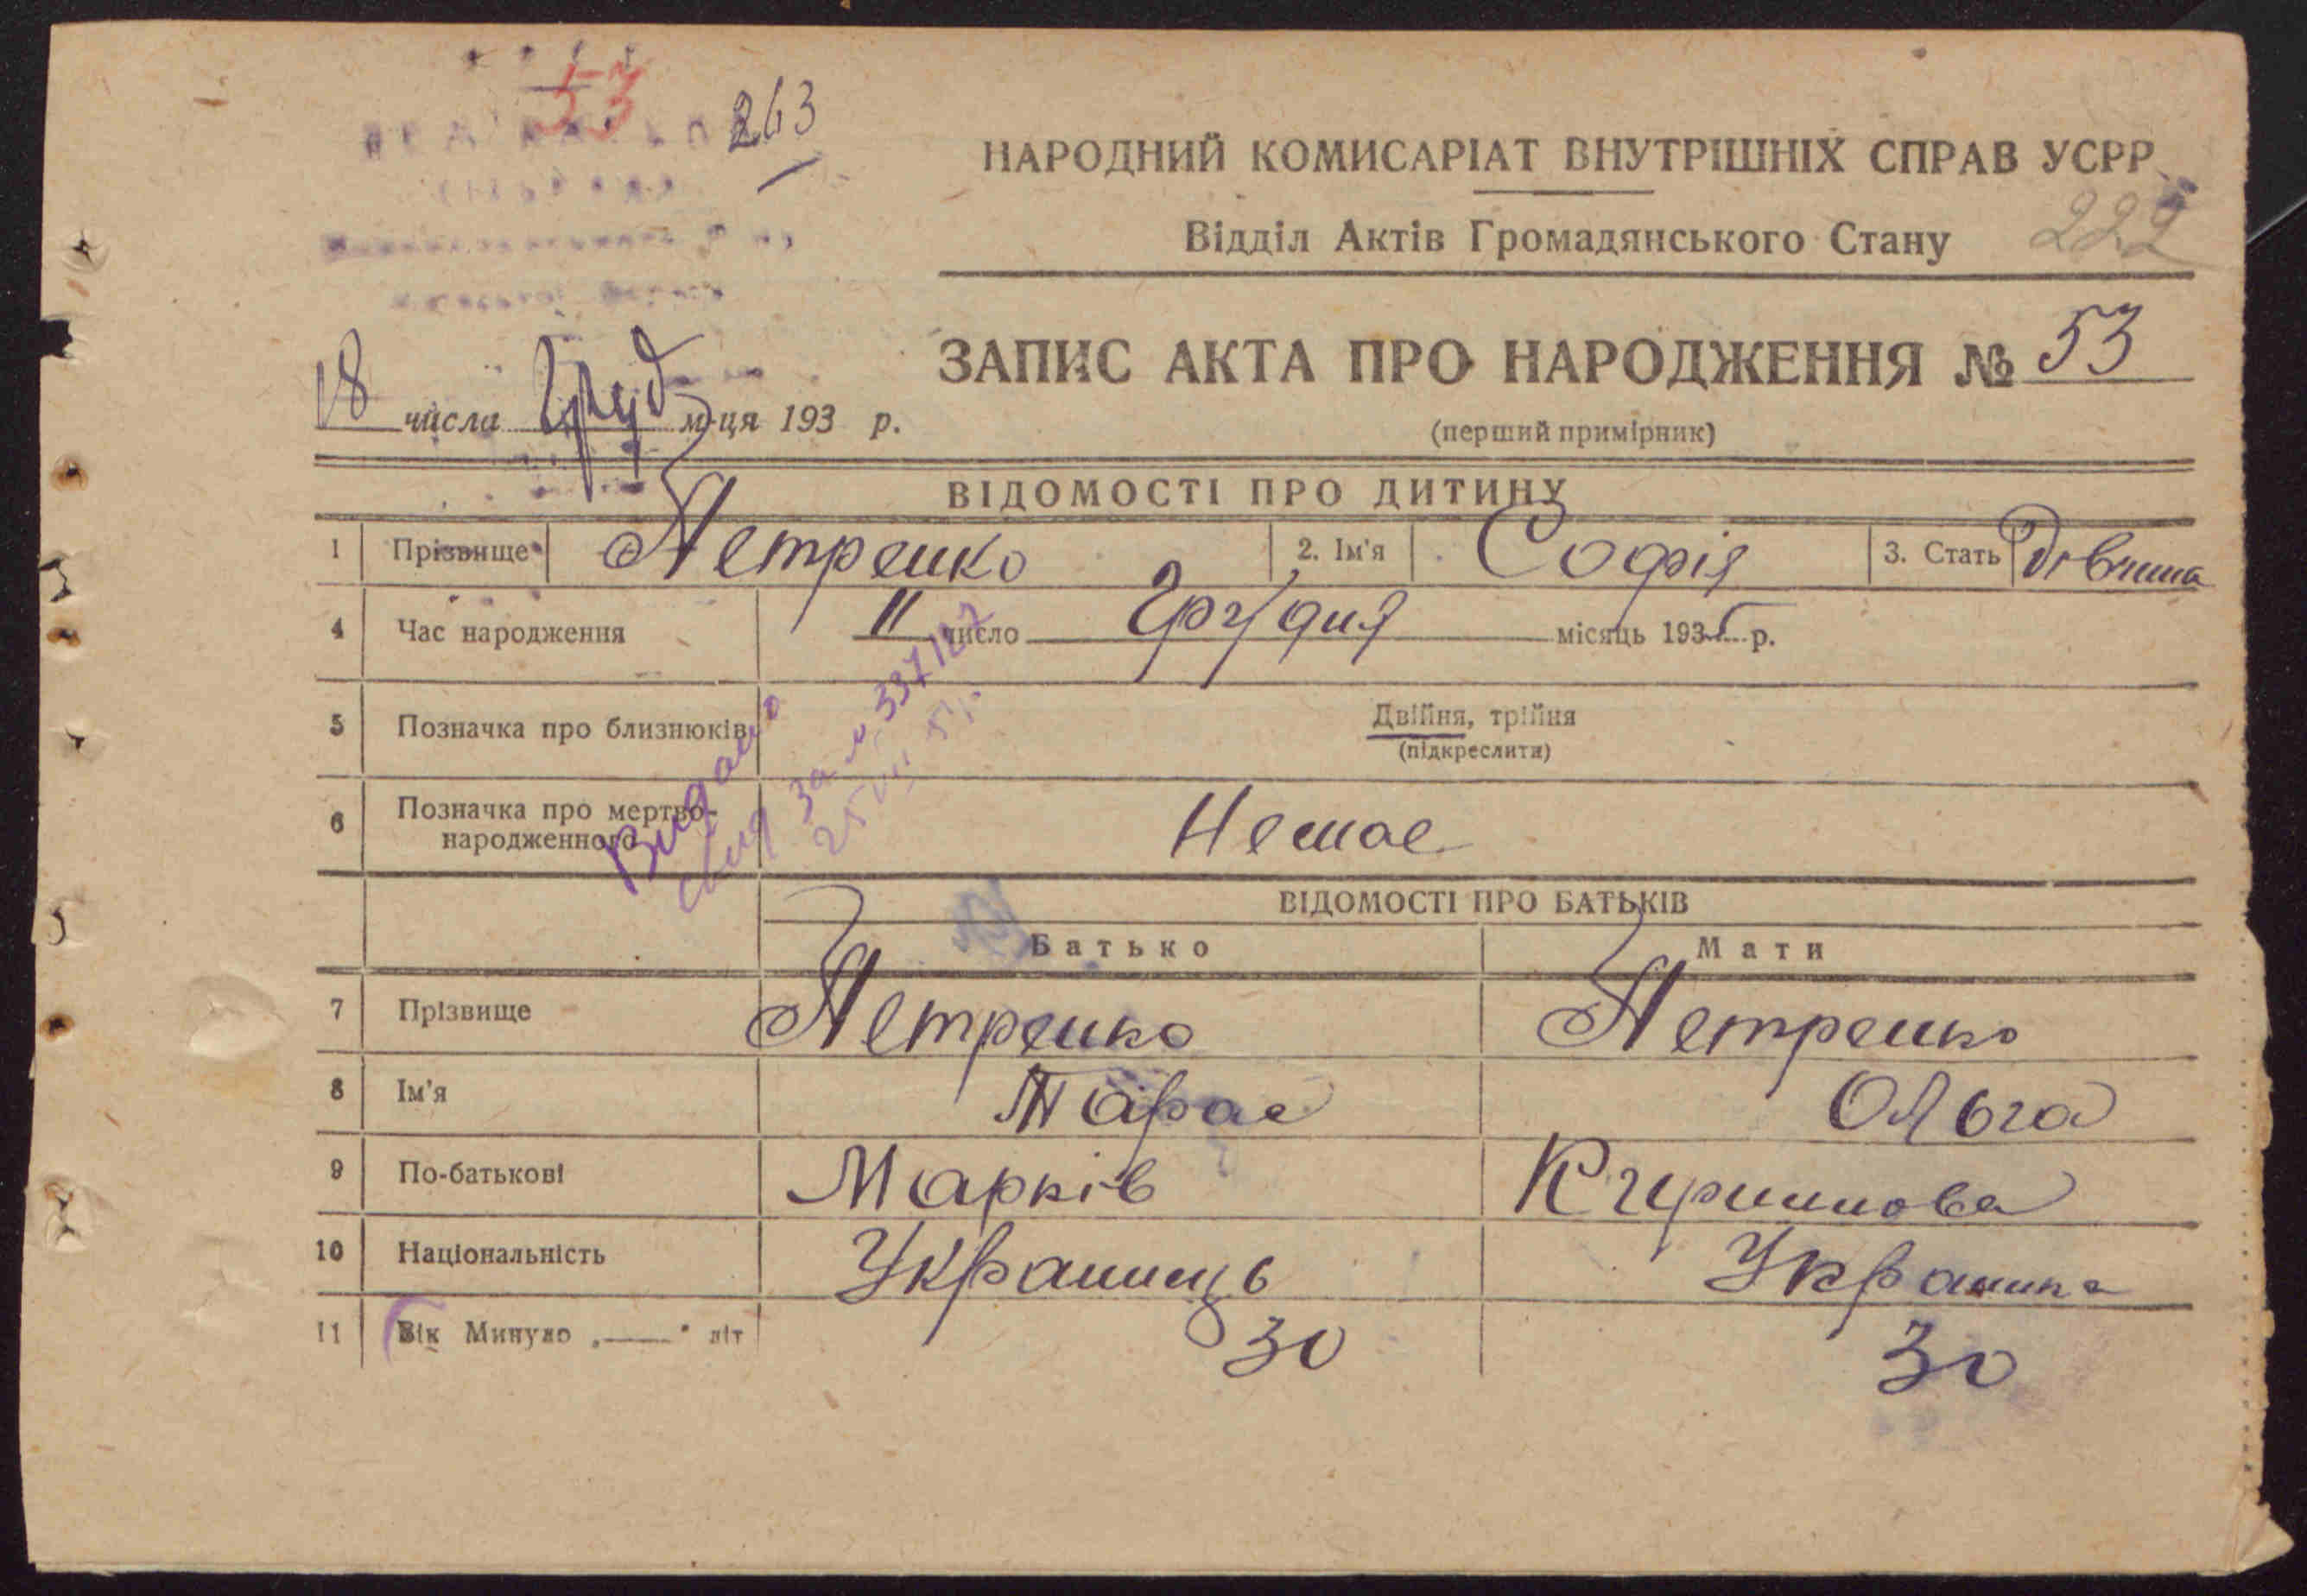 53
263
НАРОДНИЙ КОМИСАРІАТ ВНУТРІШНІХ СПРАВ УСРР
Відділ Актів Громадянського Стану
222
ЗАПИС АКТА ПРО НАРОДЖЕННЯ № 53
18 числа Груд м-ця 193 р.
(перший примірник)
ВІДОМОСТІ ПРО ДИТИНУ
1 Прізвище Петренко 2. Ім'я Софія 3. Стать Дівчина
4 Час народження 11 число Грудня місяць 1935 р.
5 Позначка про близнюків Двійня, трійня
(підкреслити)
6 Позначка про мертво-
народженного Немає
Видано
за № 337127
25
ВІДОМОСТІ ПРО БАТЬКІВ
Батько Мати
7 Прізвище Петренко Петренко
8 Ім'я Тарас Ольга
9 По-батькові Марків
10 Національність Українець Українка
11 Вік Минуло „—“ літ 30 30